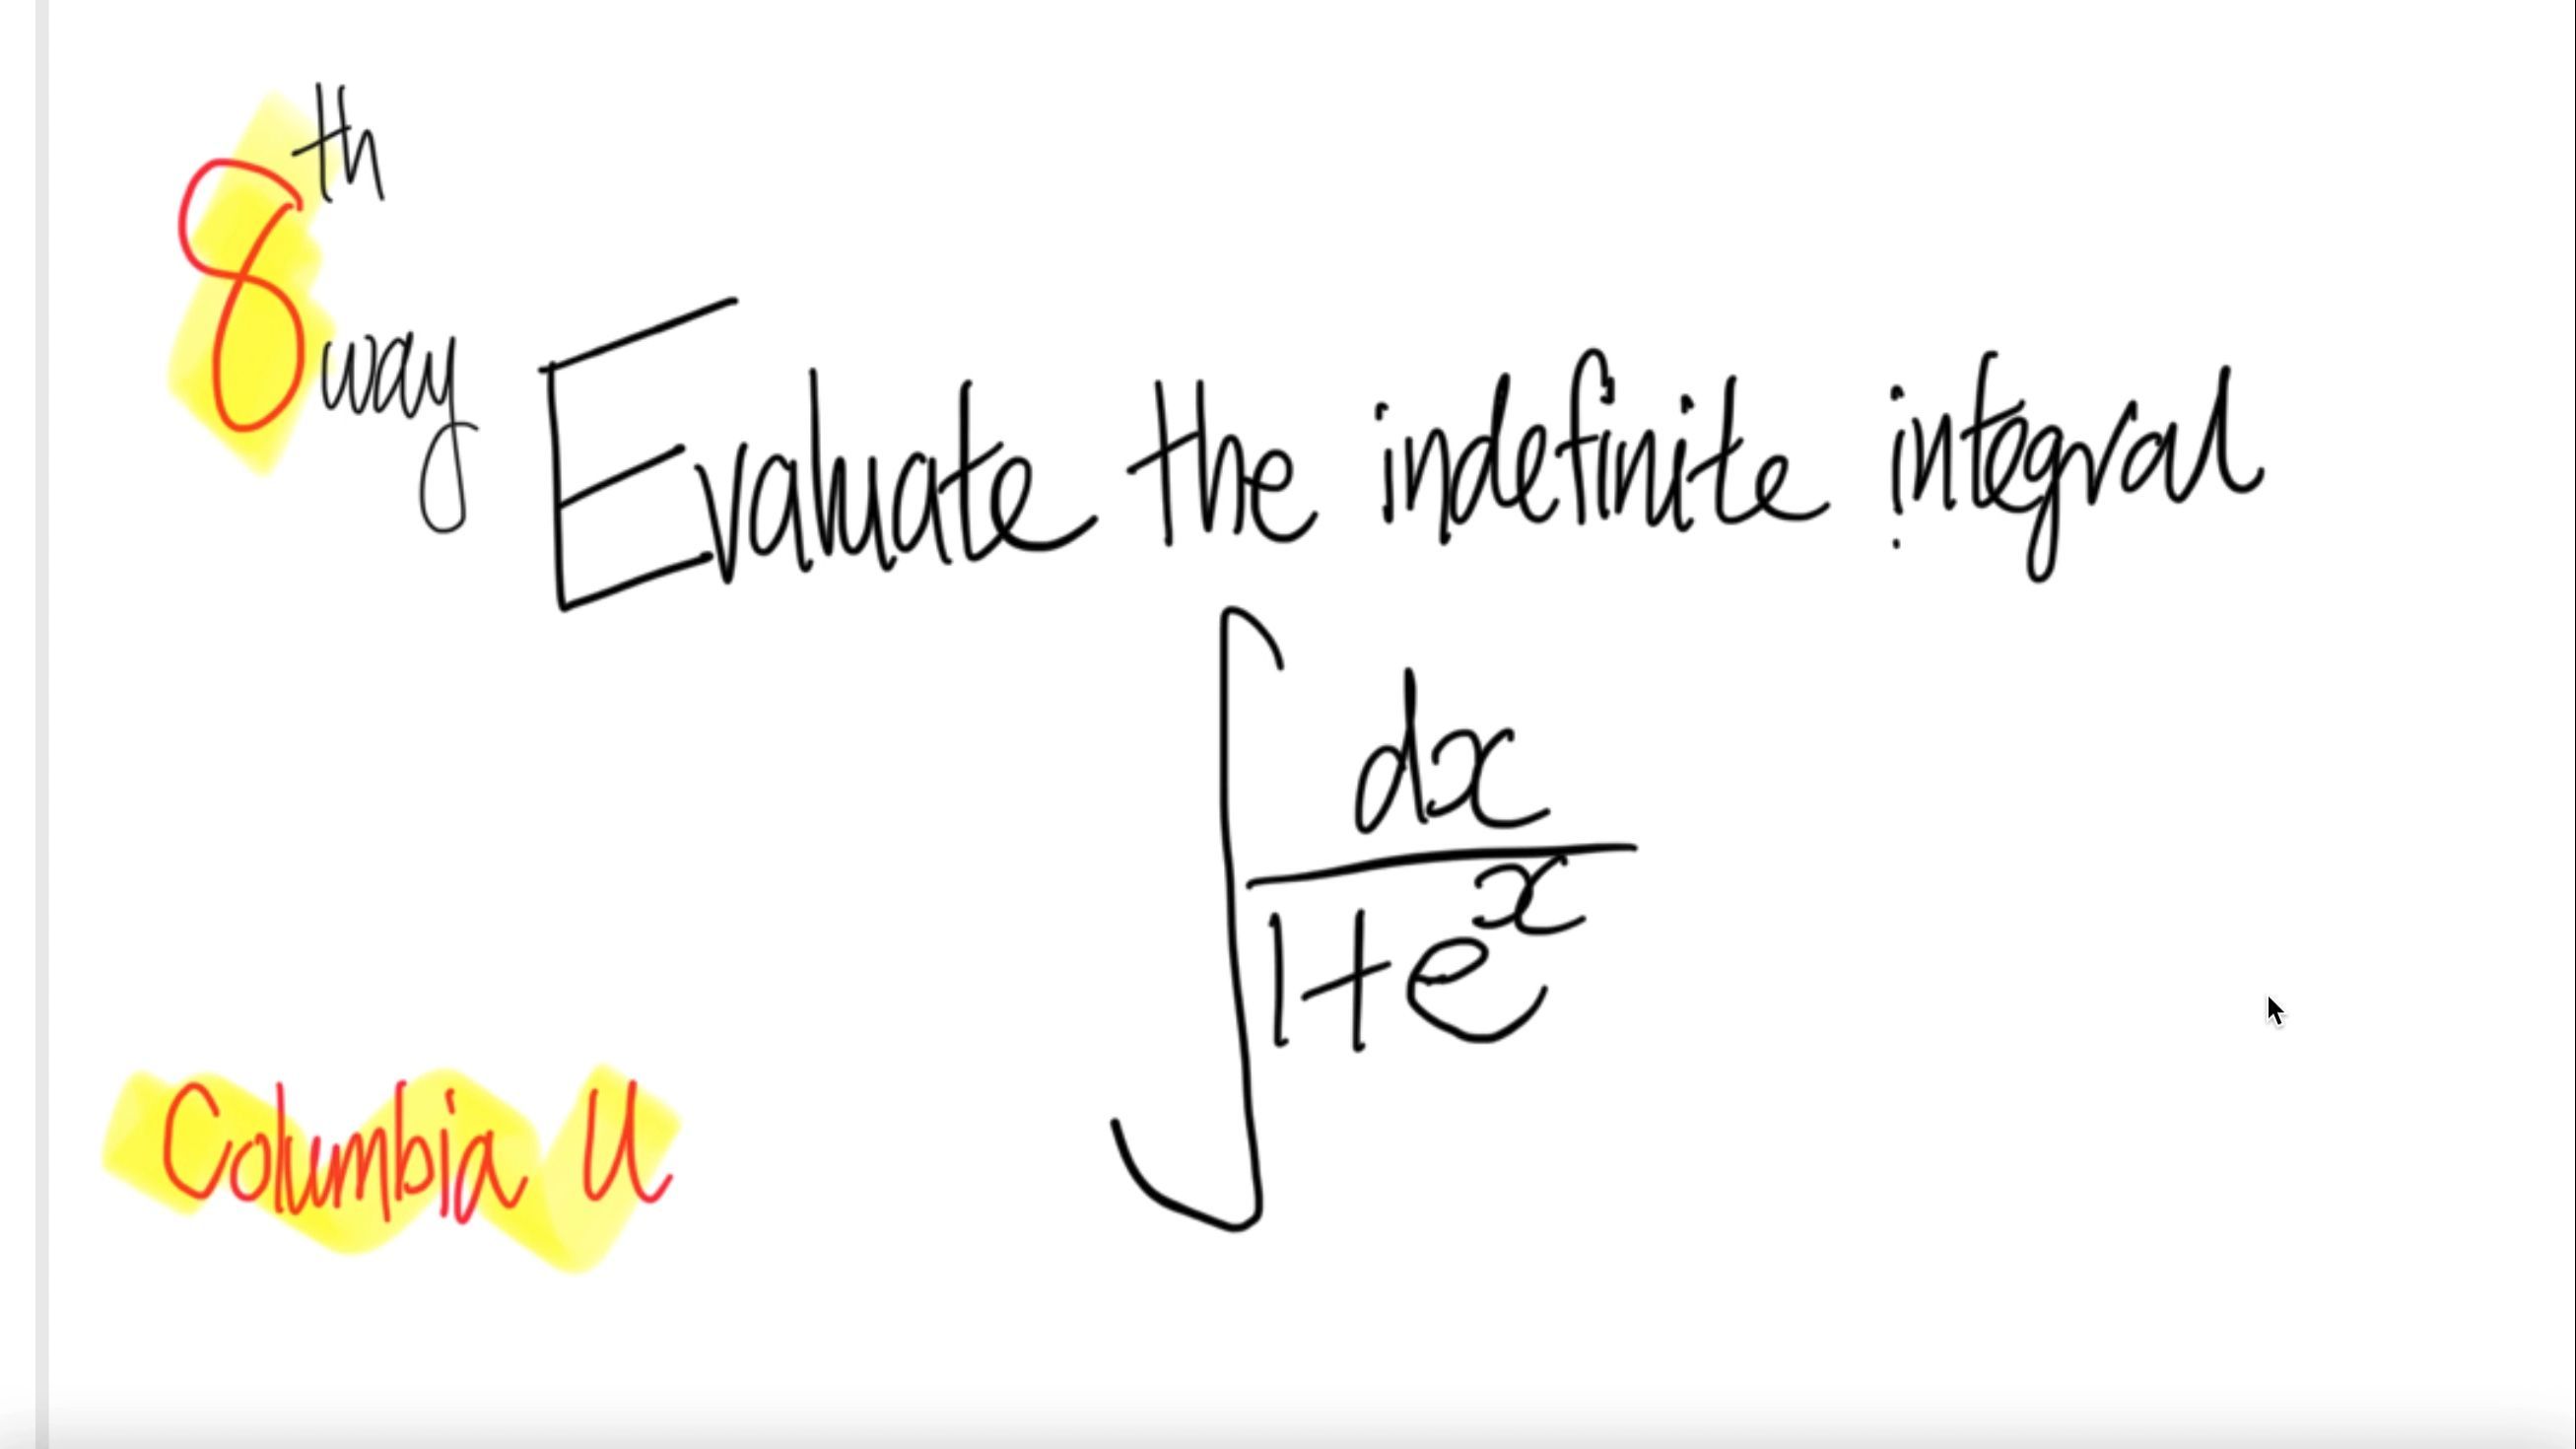 8th way
Evaluate the indefinite integral
∫ dx / 1+e^x
Columbia U